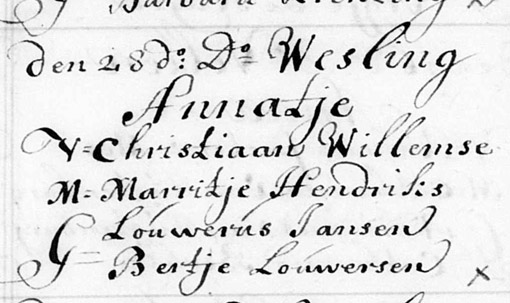 den 28 do: Do= Wesling
Annatje
V= Christiaan Willemse
M= Marritje Hendriks
G= Louwerus Jansen
Bertje Louwersen x